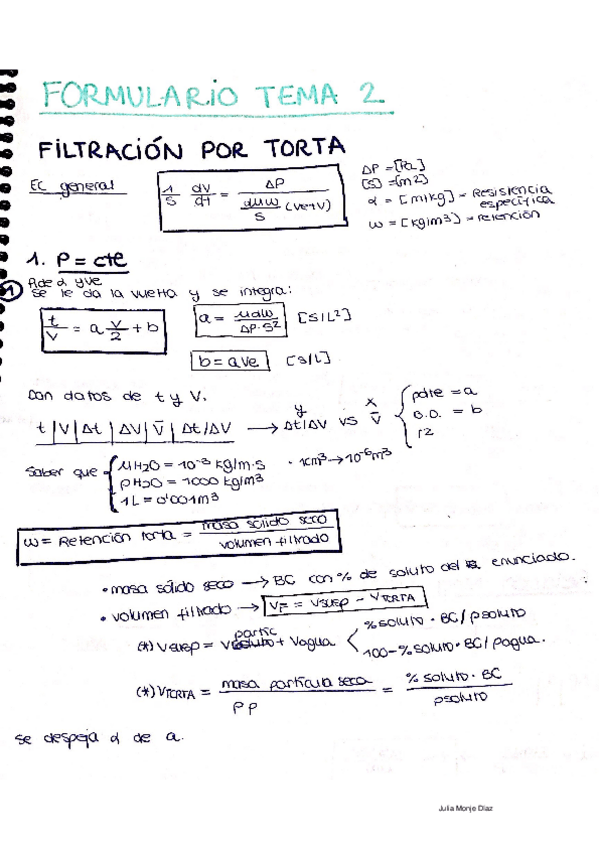 FORMULARIO TEMA 2
FILTRACIÓN POR TORTA
EC general
1/S dV/dt = ΔP / (αμω/S (Ve+V))
ΔP = [Pa]
[S] = [m2]
α = [m/kg] - Resistencia específica
ω = [kg/m3] - retención
1. P = cte
1 Pide α y Ve
se le da la vuelta y se integra:
t/V = a V/2 + b
a = μαω / ΔP·S² [S/L²]
b = a Ve [S/L]
Con datos de t y V.
t | V | Δt | ΔV | V̄ | Δt/ΔV → y Δt/ΔV vs x V̄ { pdte = a
O.O. = b
r2
Saber que { μH2O = 10⁻³ kg/m·s · 1cm³ → 10⁻⁶m³
ρH2O = 1000 kg/m³
1L = 0'001m³
ω = Retención torta = masa sólido seco / volumen filtrado
• masa sólido seco → BC con % de soluto del enunciado.
• volumen filtrado → VF = Vsusp - VTORTA
(*) Vsusp = Vpartic + Vagua < % soluto · BC / ρsoluto
100 - % soluto · BC / ρagua.
(*) VTORTA = masa partícula seca / ρp = % soluto · BC / ρsoluto
se despeja α de a.
Julia Monje Díaz